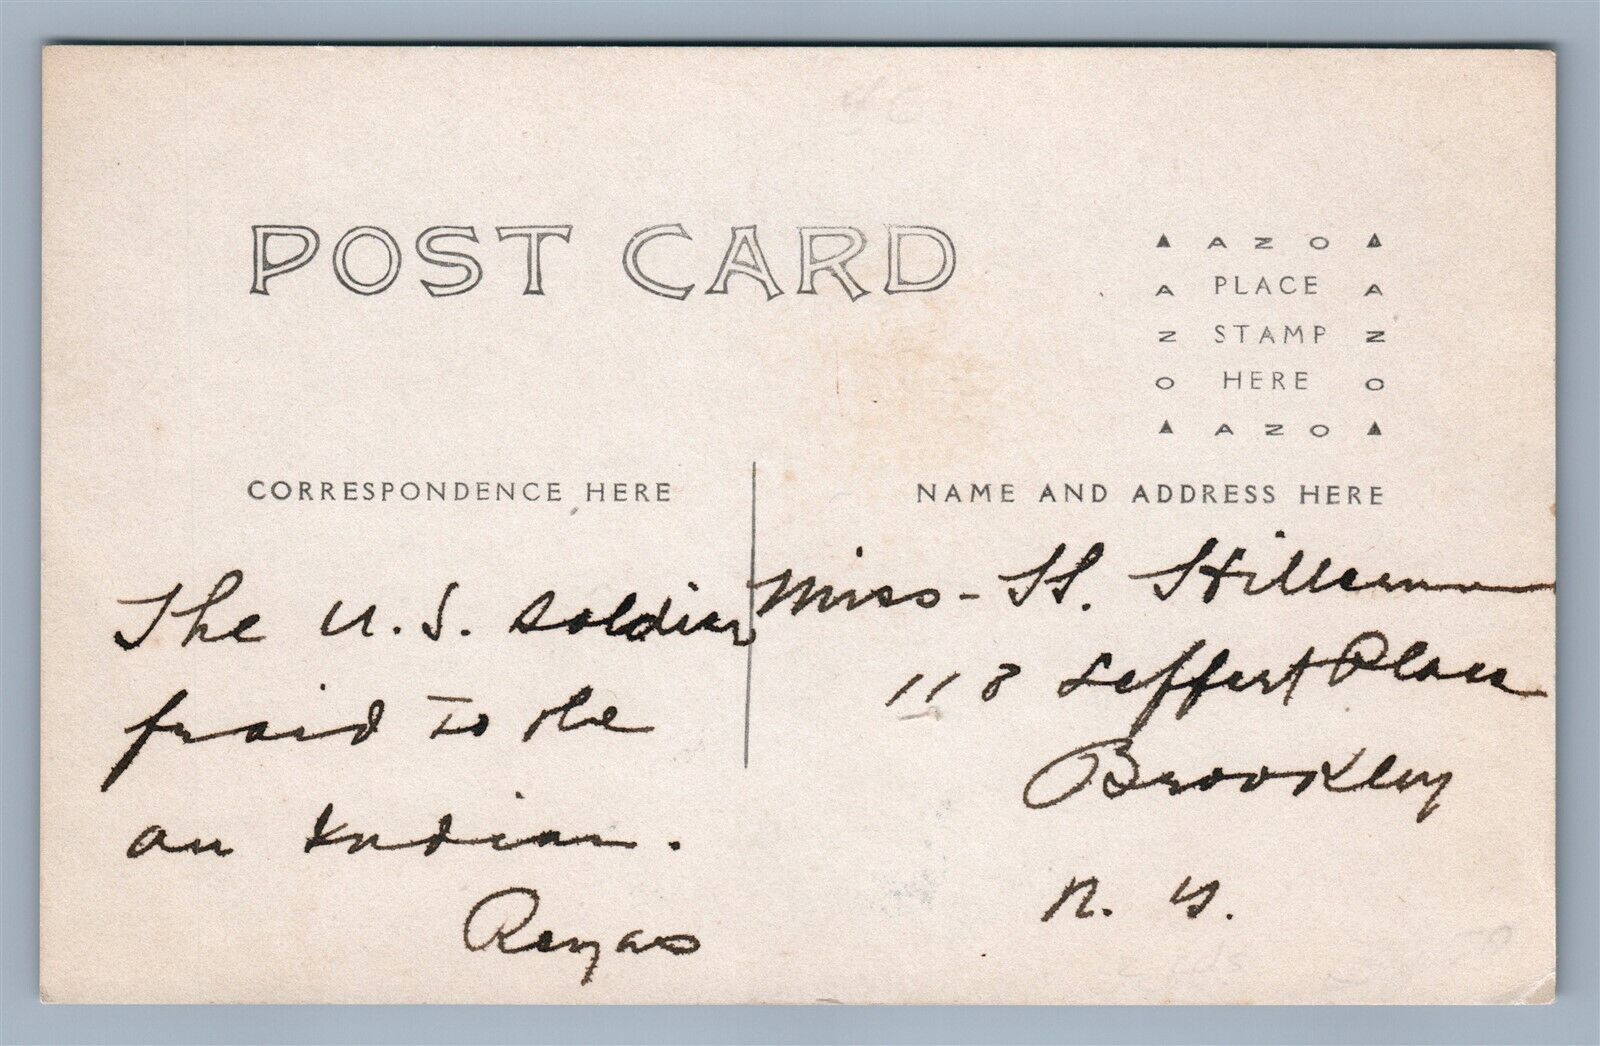 POST CARD
▲ A Z O ▲
A PLACE A
Z STAMP Z
O HERE O
▲ A Z O ▲
CORRESPONDENCE HERE
NAME AND ADDRESS HERE
The U.S. soldier
fraid to the
an Indian.
Miss - H.
118 Leffert Place
Brooklyn
N. Y.